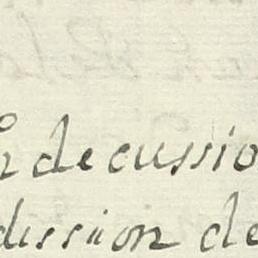 decussio
dission de